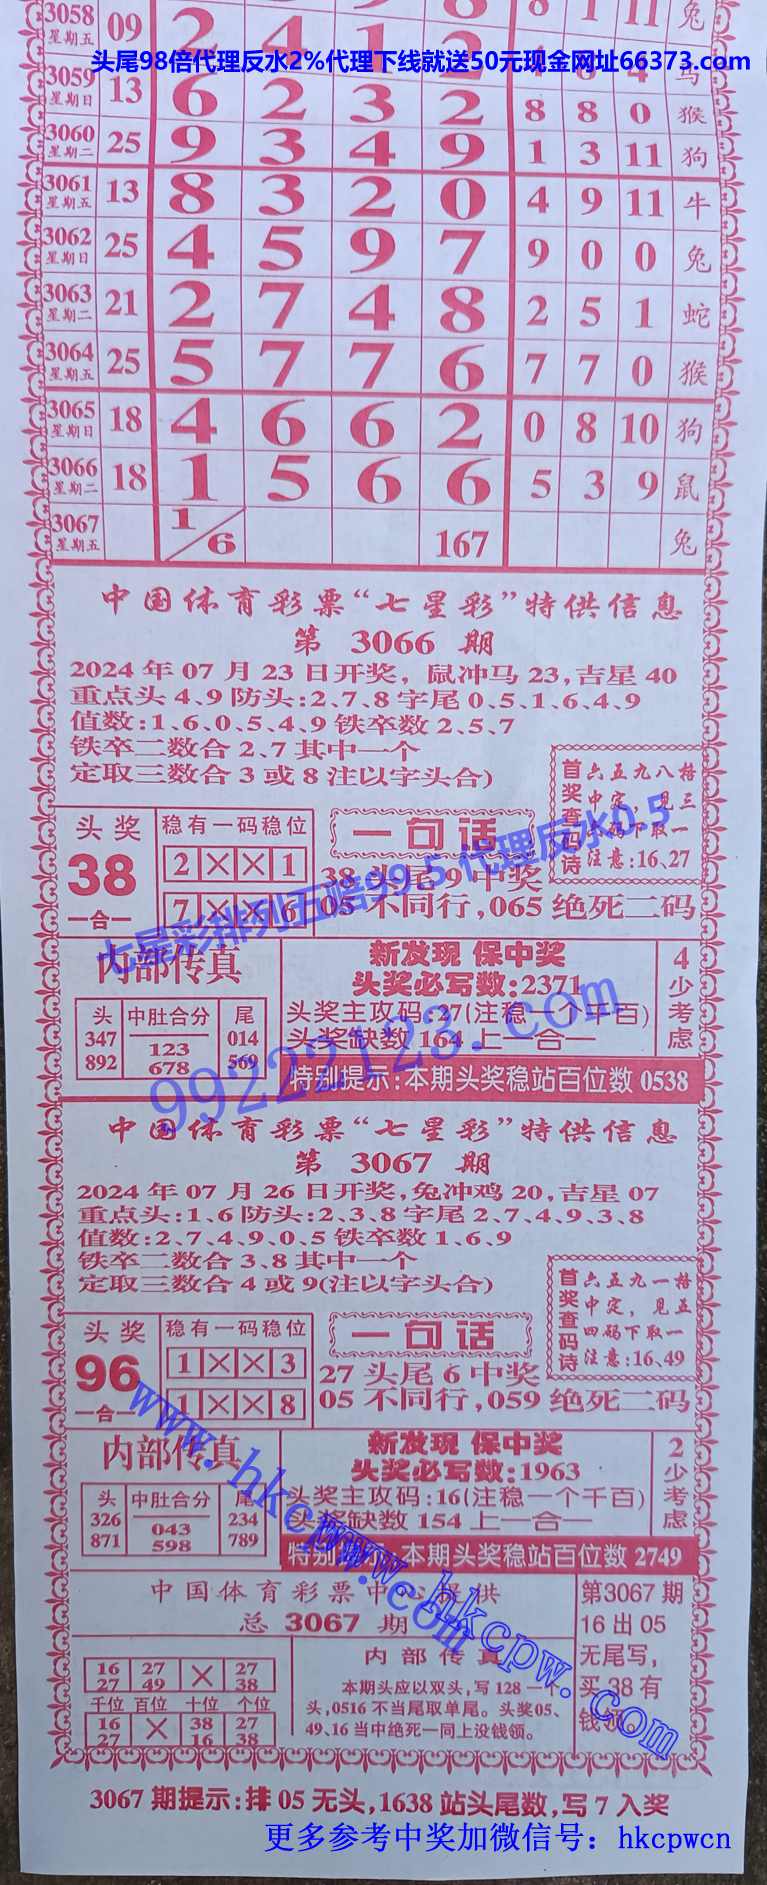 3058 星期五 09 2 4 1 8 1 11 兔
头尾98倍代理反水2%代理下线就送50元现金网址66373.com
3059 星期日 13 6 2 3 2 8 8 0 猴
3060 星期二 25 9 3 4 9 1 3 11 狗
3061 星期五 13 8 3 2 0 4 9 11 牛
3062 星期日 25 4 5 9 7 9 0 0 兔
3063 星期二 21 2 7 4 8 2 5 1 蛇
3064 星期五 25 5 7 7 6 7 7 0 猴
3065 星期日 18 4 6 6 2 0 8 10 狗
3066 星期二 18 1 5 6 6 5 3 9 鼠
3067 星期五 1/6 167 兔
中国体育彩票“七星彩”特供信息
第 3066 期
2024年07月23日开奖，鼠冲马23,吉星40
重点头4、9防头:2、7、8字尾0、5、1、6、4、9
值数:1、6、0、5、4、9铁卒数2、5、7
铁卒二数合2、7其中一个
定取三数合3或8注以字头合)
首奖查码诗
六五九八格
中定，见三
码下取一
注意:16、27
头奖
38
一合一
稳有一码稳位
2 × × 1
7 × × 6
一句话
38头尾9中奖
05不同行,065绝死二码
七星彩排列五赔99.5 代理反水0.5
内部传真
头 中肚合分 尾
347 123 014
892 678 569
新发现 保中奖
头奖必写数:2371
头奖主攻码:27(注稳一个千百)
头奖缺数164上一合一
4少考虑
特别提示:本期头奖稳站百位数0538
99222123.com
中国体育彩票“七星彩”特供信息
第 3067 期
2024年07月26日开奖,兔冲鸡20,吉星07
重点头:1、6防头:2、3、8字尾2、7、4、9、3、8
值数:2、7、4、9、0、5铁卒数1、6、9
铁卒二数合3、8其中一个
定取三数合4或9(注以字头合)
首奖查码诗
六五九一格
中定，见五
四码下取一
注意:16、49
头奖
96
一合一
稳有一码稳位
1 × × 3
1 × × 8
一句话
27头尾6中奖
05不同行,059绝死二码
内部传真
头 中肚合分 尾
326 043 234
871 598 789
新发现 保中奖
头奖必写数:1963
头奖主攻码:16(注稳一个千百)
头奖缺数154上一合一
2少考虑
特别提示:本期头奖稳站百位数2749
www.hkcpw.com
www.hkcpw.com
中国体育彩票中心提供
总 3067 期
16 27 × 27
27 49 38
千位 百位 十位 个位
16 × 38 27
27 16 38
内部传真
本期头应以双头,写128一个
头,0516不当尾取单尾。头奖05、
49、16当中绝死一同上没钱领。
第3067期
16出05
无尾写,
买38有
钱领。
3067期提示:排05无头,1638站头尾数,写7入奖
更多参考中奖加微信号：hkcpwcn